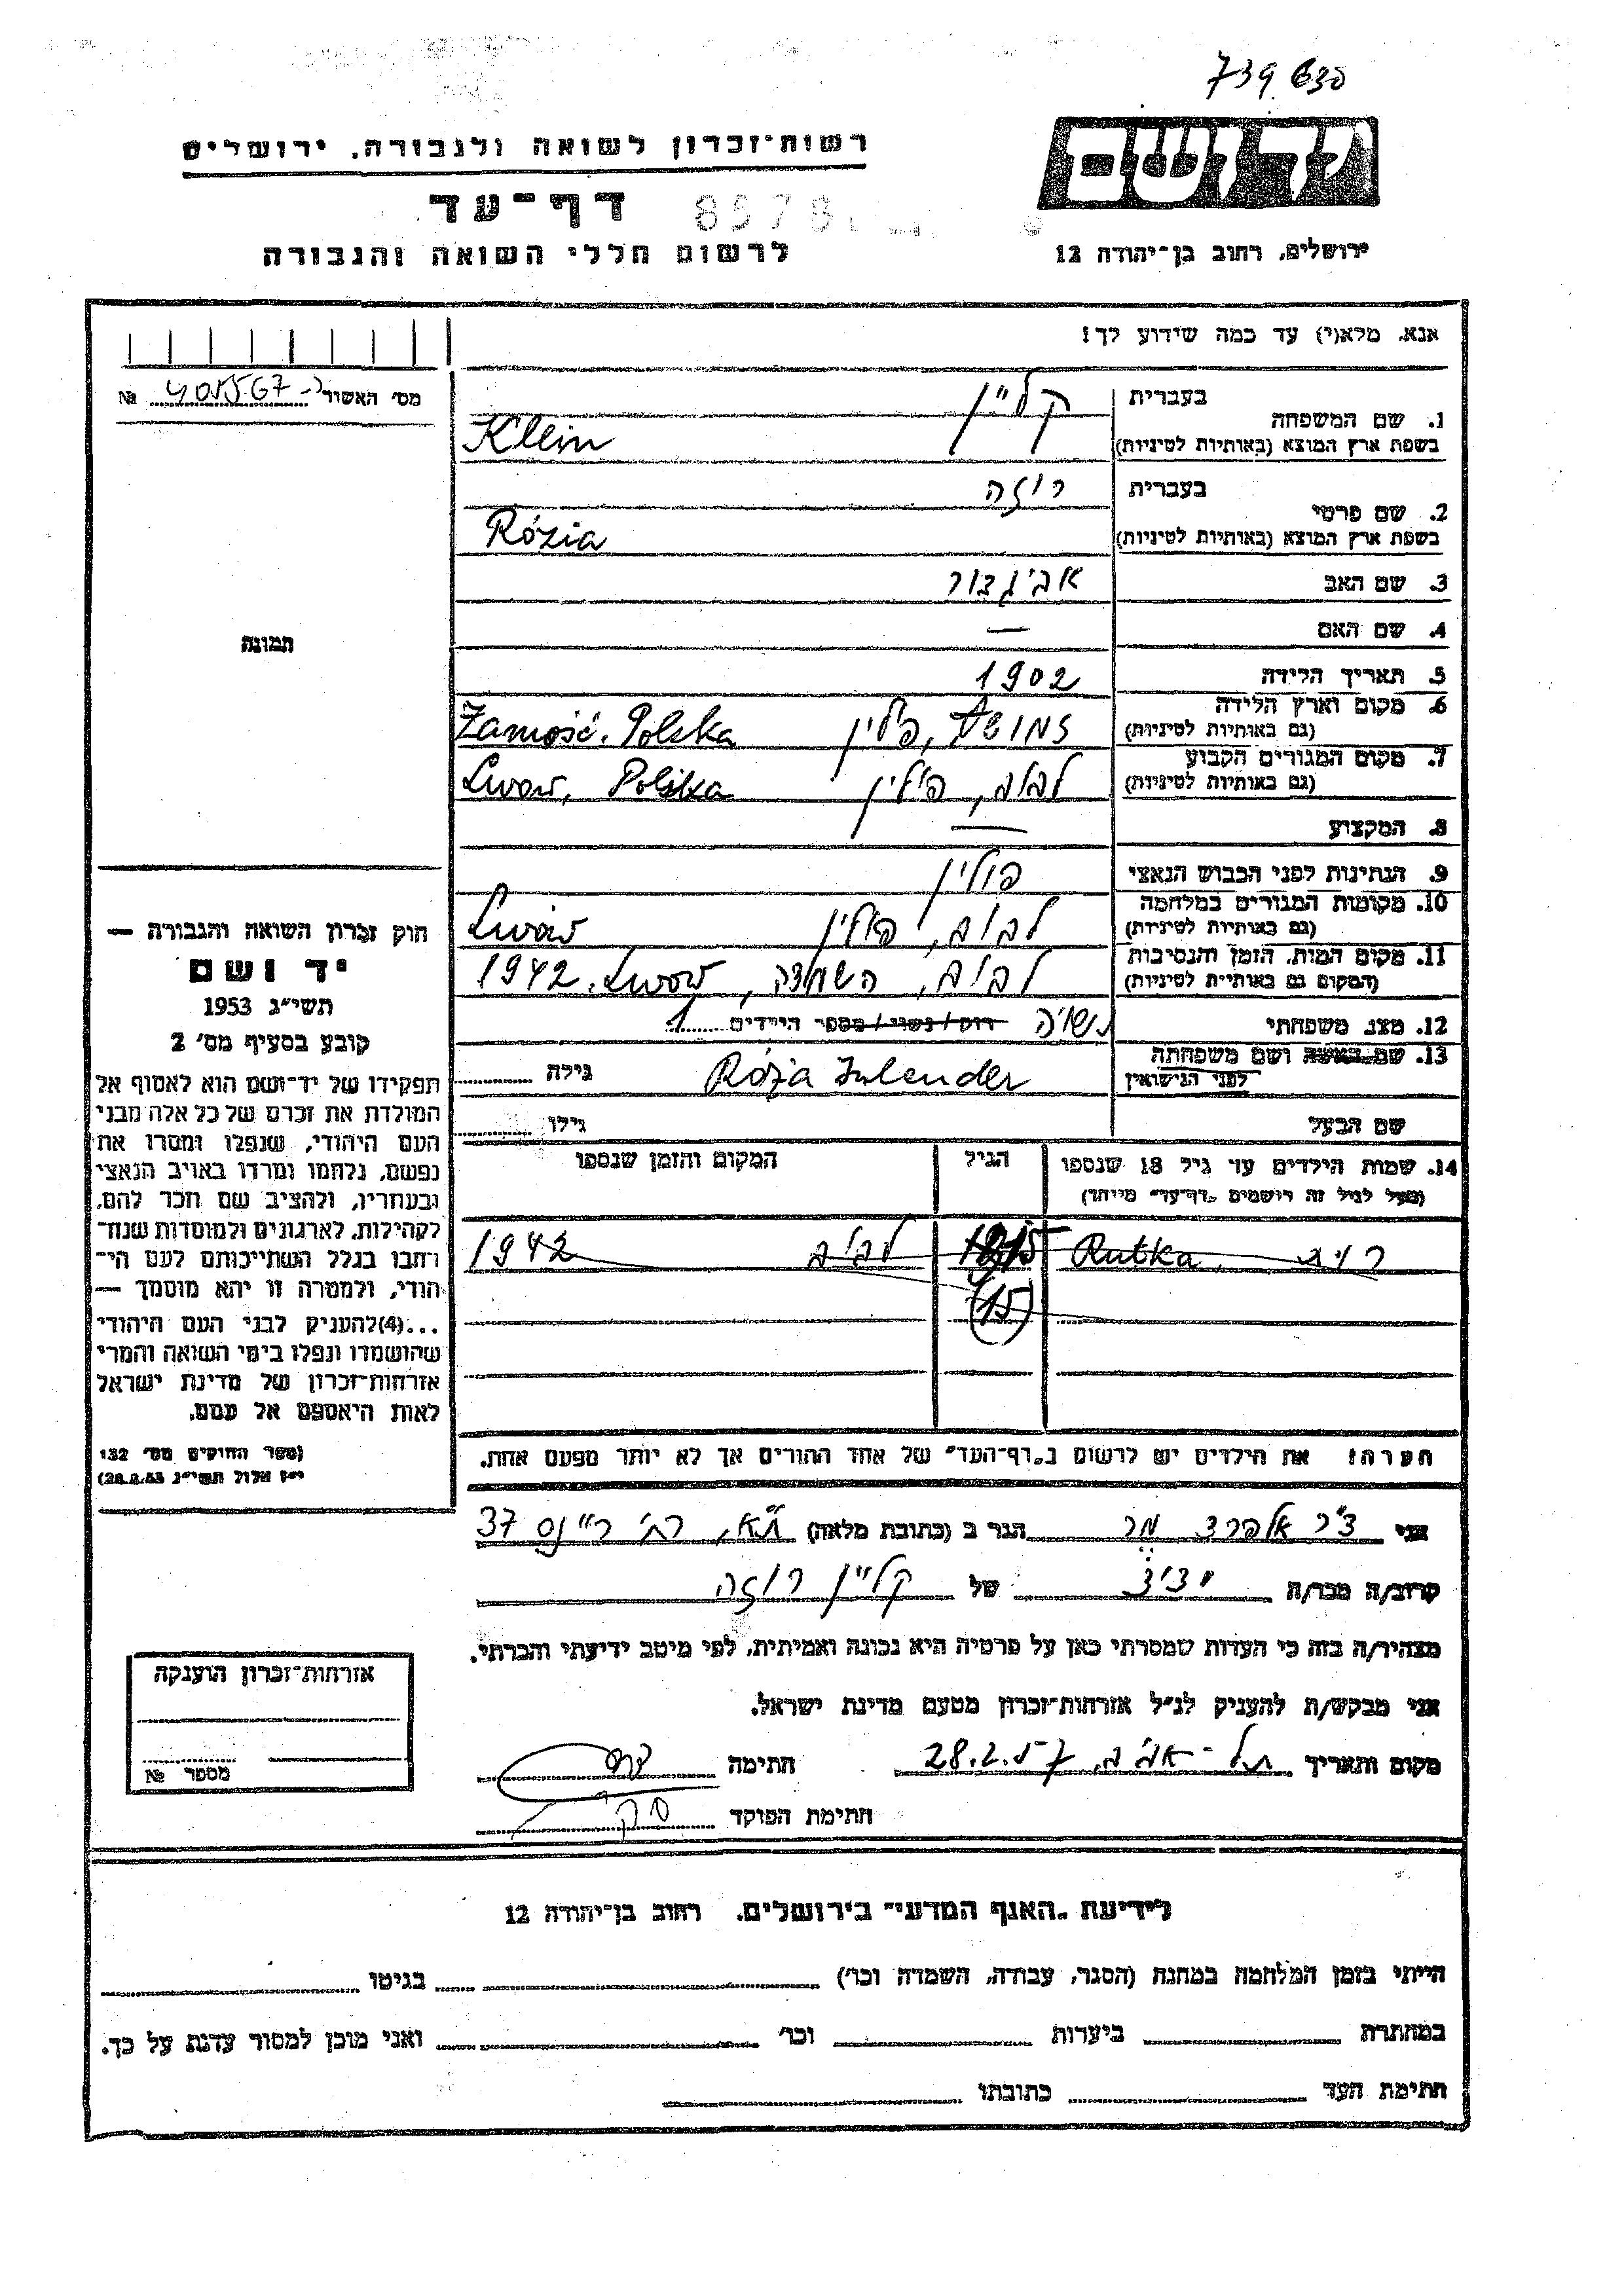 739630
רשות־זכרון לשואה ולגבורה, ירושלים
יד ושם
דף־עד
8578
לרשום חללי השואה והגבורה
ירושלים, רחוב בן־יהודה 12
אנא, מלא(י) עד כמה שידוע לך!
מס׳ האשור № 
בעברית קליין
1. שם המשפחה
בשפת ארץ המוצא (באותיות לטיניות) Klein
בעברית רוזה
2. שם פרטי
בשפת ארץ המוצא (באותיות לטיניות) Rózia
3. שם האב אביגדור
4. שם האם —
תמונה
5. תאריך הלידה 1902
6. מקום וארץ הלידה
(גם באותיות לטיניות) פולין Zamość. Polska
7. מקום המגורים הקבוע
(גם באותיות לטיניות) לבוב, פולין Lwow, Polska
8. המקצוע —
9. הנתינות לפני הכבוש הנאצי פולין
10. מקומות המגורים במלחמה
(גם באותיות לטיניות) לבוב, פולין Lwów
11. מקום המות, הזמן והנסיבות
(המקום גם באותיות לטיניות) לבוב, השמדה, 1942. Lwow
12. מצב משפחתי נשואה רווק/נשוי/מספר הילדים 1
13. שם האשה ושם משפחתה
לפני הנישואין Róża Inlender גילה
שם הבעל גילו
14. שמות הילדים עד גיל 18 שנספו הגיל המקום והזמן שנספו
(מעל לגיל זה רושמים „דף־עד״ מיוחד)
Rutka לבוב 1942
(15)
חוק זכרון השואה והגבורה —
יד ושם
תשי״ג 1953
קובע בסעיף מס׳ 2
תפקידו של יד־ושם הוא לאסוף אל
המולדת את זכרם של כל אלה מבני
העם היהודי, שנפלו ומסרו את
נפשם, נלחמו ומרדו באויב הנאצי
ובעוזריו, ולהציב שם וזכר להם,
לקהילות, לארגונים ולמוסדות שנח־
רבו בגלל השתייכותם לעם הי־
הודי, ולמטרה זו יהא מוסמך —
...(4)להעניק לבני העם היהודי
שהושמדו ונפלו בימי השואה והמרי
אזרחות־זכרון של מדינת ישראל
לאות היאספם אל עמם.
(ספר החוקים מס׳ 132
י״ז אלול תשי״ג 28.8.53)
הערה: את הילדים יש לרשום ב„דף־העד״ של אחד ההורים אך לא יותר מפעם אחת.
אני ד״ר אלפרד הגר ב (כתובת מלאה) ת״א, רח׳ ריינס 37
קרוב/ה מכר/ה ידיד של קליין רוזה
מצהיר/ה בזה כי העדות שמסרתי כאן על פרטיה היא נכונה ואמיתית, לפי מיטב ידיעתי והכרתי.
אני מבקש/ת להעניק לנ״ל אזרחות־זכרון מטעם מדינת ישראל.
מקום ותאריך תל-אביב, 28.2.57 חתימה
חתימת הפוקד
אזרחות־זכרון הוענקה
מספר №
לידיעת „האגף המדעי״ בירושלים, רחוב בן־יהודה 12
הייתי בזמן המלחמה במחנה (הסגר, עבודה, השמדה וכו׳) בגיטו
במחתרת ביערות וכו׳ ואני מוכן למסור עדות על כך.
חתימת העד כתובתו